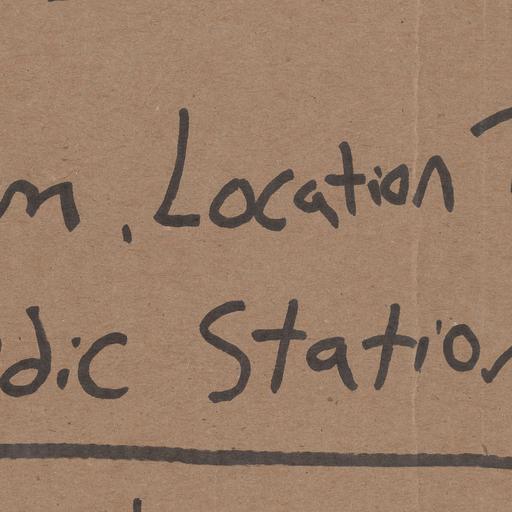 m, Location
dic Station